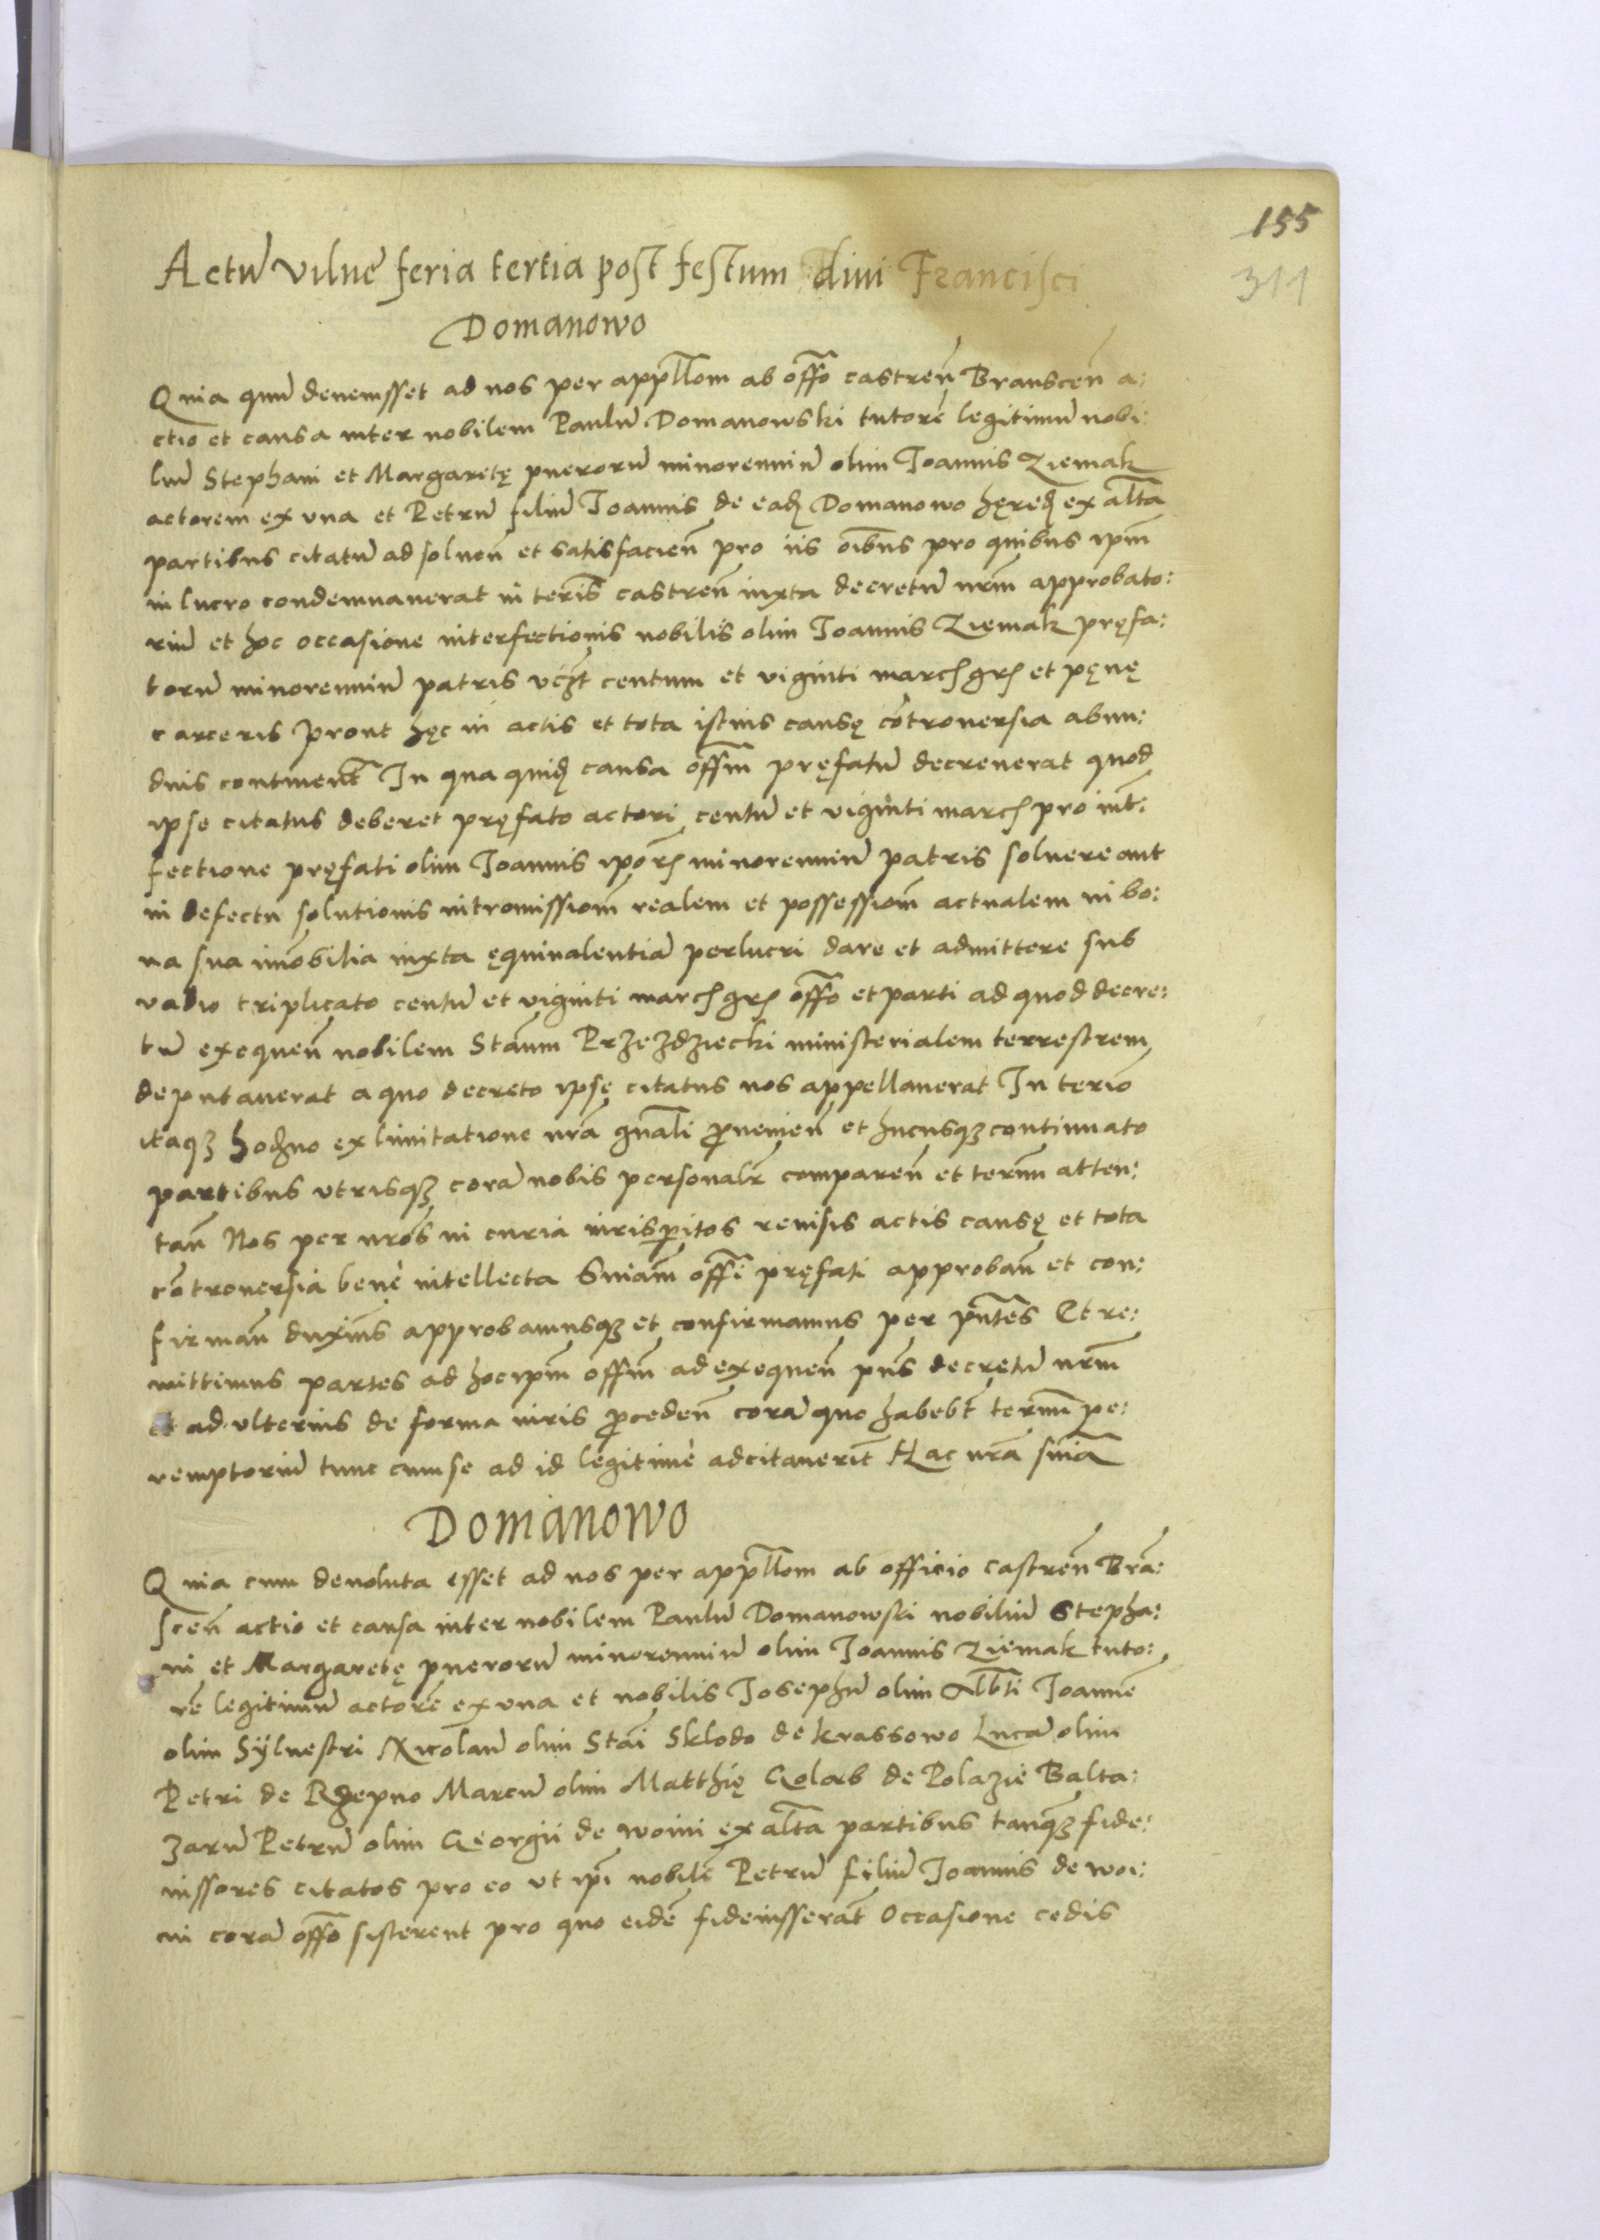 155
311
Actũ Vilnẽ feria tertia post festum diui Francisci
Domanowo
Quia quũ deuenisset ad nos per appllom ab offo castreñ Branscen̄ a:
ctio et causa inter nobilem Paulũ Domanowski tutorẽ legitimũ nobi:
liũ Stephani et Margaretę puerorũ minorenniũ olim Joannis Ziemak
actorem ex vna et Petrũ filiũ Joannis de eađ Domanowo hęređ ex alta
partibus citatũ ad soluen̄ et satisfacien̄ pro iis oībus pro quibus ipm
in lucro condemnauerat in teris castren̄ iuxta decretũ nrm approbato:
riũ et hoc occasione interfectionis nobilis olim Joannis Ziemak pręfa:
torũ minorenniũ patris vcz̄t centum et viginti march gr et pęnę
carceris Prout hęc in actis et tota istius causę cõtrouersia abun:
dius continent̃ In qua quiđ causa offm pręfatũ decreuerat quod
ipse citatus deberet pręfato actori centũ et viginti march pro int̃:
fectione pręfati olim Joannis ipor minorenniũ patris soluere aut
in defectu solutionis intromissiom realem et possessiom actualem in bo:
na sua imobilia iuxta ęquiualentiã perlucri dare et admittere sub
vadio triplicato centũ et viginti march gr offo et parti ad quod decre:
tũ exequen̄ nobilem Stam Przezdziecki ministerialem terrestrem
deputauerat a quo decreto ipsę citatus nos appellauerat In terio
itaqz hodno ex limitatione nra gnali prouenien̄ et hucusqz continuato
partibus vtrisqz corã nobis personalr comparen̄ et termn atten:
tan̄ Nos per nros in curia iurisperitos reuisis actis causę et tota
cõtrouersia benè intellecta Sniam offi pręfati approban̄ et con:
firman̄ duxim̃s approbamusqz et confirmamus per pn̄tes Et re:
mittimus partes ad hoc ipm offm ad exequen̄ pn̄s decrętũ nrm
et ad vlterius de forma iuris proceden̄ corã quo habebt termn pe:
remptoriũ tunc cum se ad id legitimè adcitauerit̃ Hac nra snia
Domanowo
Quia cum deuoluta esset ad nos per appllom ab officio castren̄ Brã:
scen̄ actio et causa inter nobilem Paulũ Domanowski nobiliũ Stepha:
ni et Margaretę puerorũ minorenniũ olim Joannis Ziemak tuto:
rẽ legitimũ actorẽ ex vna et nobilis Josephũ olim Albti Joannẽ
olim Sÿluestri Nicolaũ olim Stai Sklodo de Krassowo Lucã olim
Petri de Rzepno Marcũ olim Matthię Golab de Polazie Balta:
zarũ Petrũ olim Georgii de woini ex alta partibus tanqz fide:
iussores citatos pro eo ut ipi nobilẽ Petrũ filiũ Joannis de woi:
ni corã offo sisterent pro quo eidẽ fideiusserãt Occasione cedis